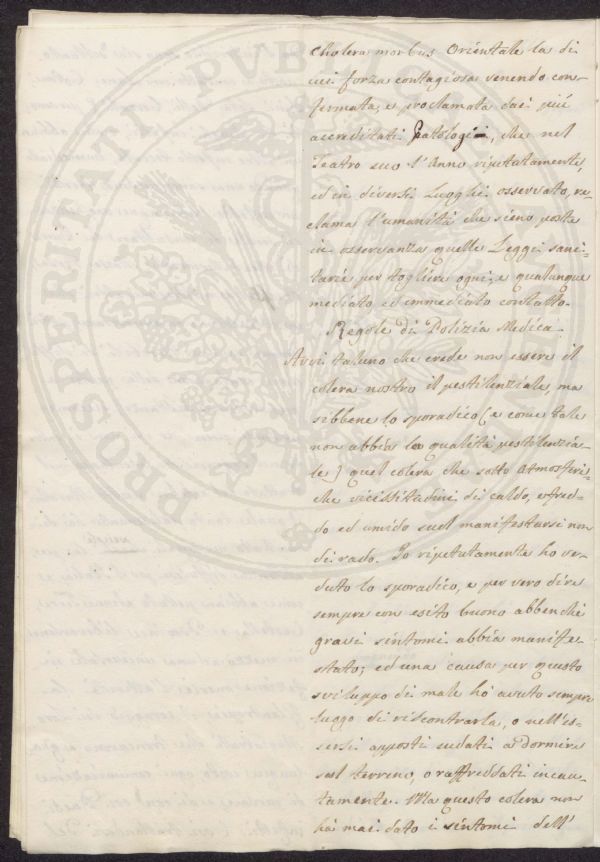 Cholera morbus Orientale la di
cui forza contagiosa venendo con-
fermata, e proclamata dai più
accreditati Patologi, che nel
Teatro suo l'Anno ripetutamente,
ed in diversi Luoghi osservato, re-
clama l'umanità che sieno poste
in osservanza quelle Leggi sani-
tarie per togliere ogni, e qualunque
mediato ed immediato contatto.
Regole di Polizia Medica
Avvi taluno che crede non essere il
colera nostro il pestilenziale, ma
sibbene lo sporadico (e come tale
non abbia la qualità pestilenzia-
le) quel colera che sotto atmosferi-
che vicissitudini di caldo, e fred-
do ed umido suol manifestarsi non
di rado. Io ripetutamente ho ve-
duto lo sporadico, e per vero dire
sempre con esito buono abbenchè
gravi sintomi abbia manife-
stato; ed una causa per questo
sviluppo di male hò avuto sempre
luogo di riscontrarla, o nell'es-
sersi apposti sudati a dormire
sul terreno, o raffreddati incau-
tamente. Ma questo colera non
hà mai dato i sintomi dell'
PROSPERITATI PVBLICAE